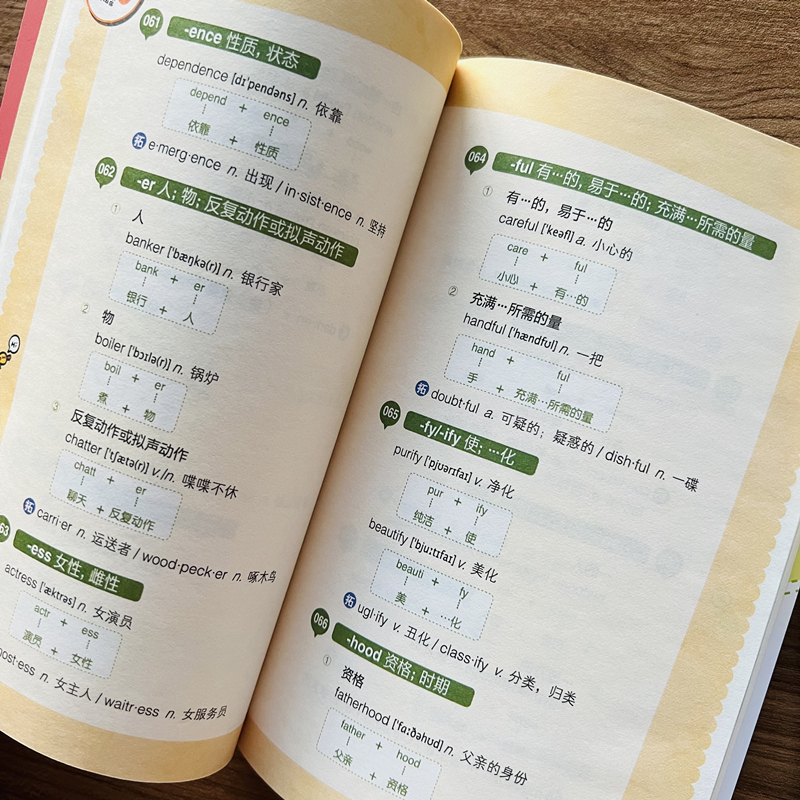 061
-ence 性质, 状态
dependence [dɪ'pendəns] n. 依靠
depend + ence
依靠 + 性质
拓 e·merg·ence n. 出现 / in·sist·ence n. 坚持
062
-er 人; 物; 反复动作或拟声动作
① 人
banker ['bæŋkə(r)] n. 银行家
bank + er
银行 + 人
② 物
boiler ['bɔɪlə(r)] n. 锅炉
boil + er
煮 + 物
③ 反复动作或拟声动作
chatter ['tʃætə(r)] v./n. 喋喋不休
chatt + er
聊天 + 反复动作
拓 carri·er n. 运送者 / wood·peck·er n. 啄木鸟
63
-ess 女性, 雌性
actress ['æktrəs] n. 女演员
actr + ess
演员 + 女性
host·ess n. 女主人 / waitr·ess n. 女服务员
064
-ful 有…的, 易于…的; 充满…所需的量
① 有…的, 易于…的
careful ['keəfl] a. 小心的
care + ful
小心 + 有…的
② 充满…所需的量
handful ['hændfʊl] n. 一把
hand + ful
手 + 充满…所需的量
拓 doubt·ful a. 可疑的; 疑惑的 / dish·ful n. 一碟
065
-fy/-ify 使; …化
purify ['pjʊərɪfaɪ] v. 净化
pur + ify
纯洁 + 使
beautify ['bjuːtɪfaɪ] v. 美化
beauti + fy
美 + …化
拓 ugl·ify v. 丑化 / class·ify v. 分类, 归类
066
-hood 资格; 时期
① 资格
fatherhood ['fɑːðəhʊd] n. 父亲的身份
father + hood
父亲 + 资格